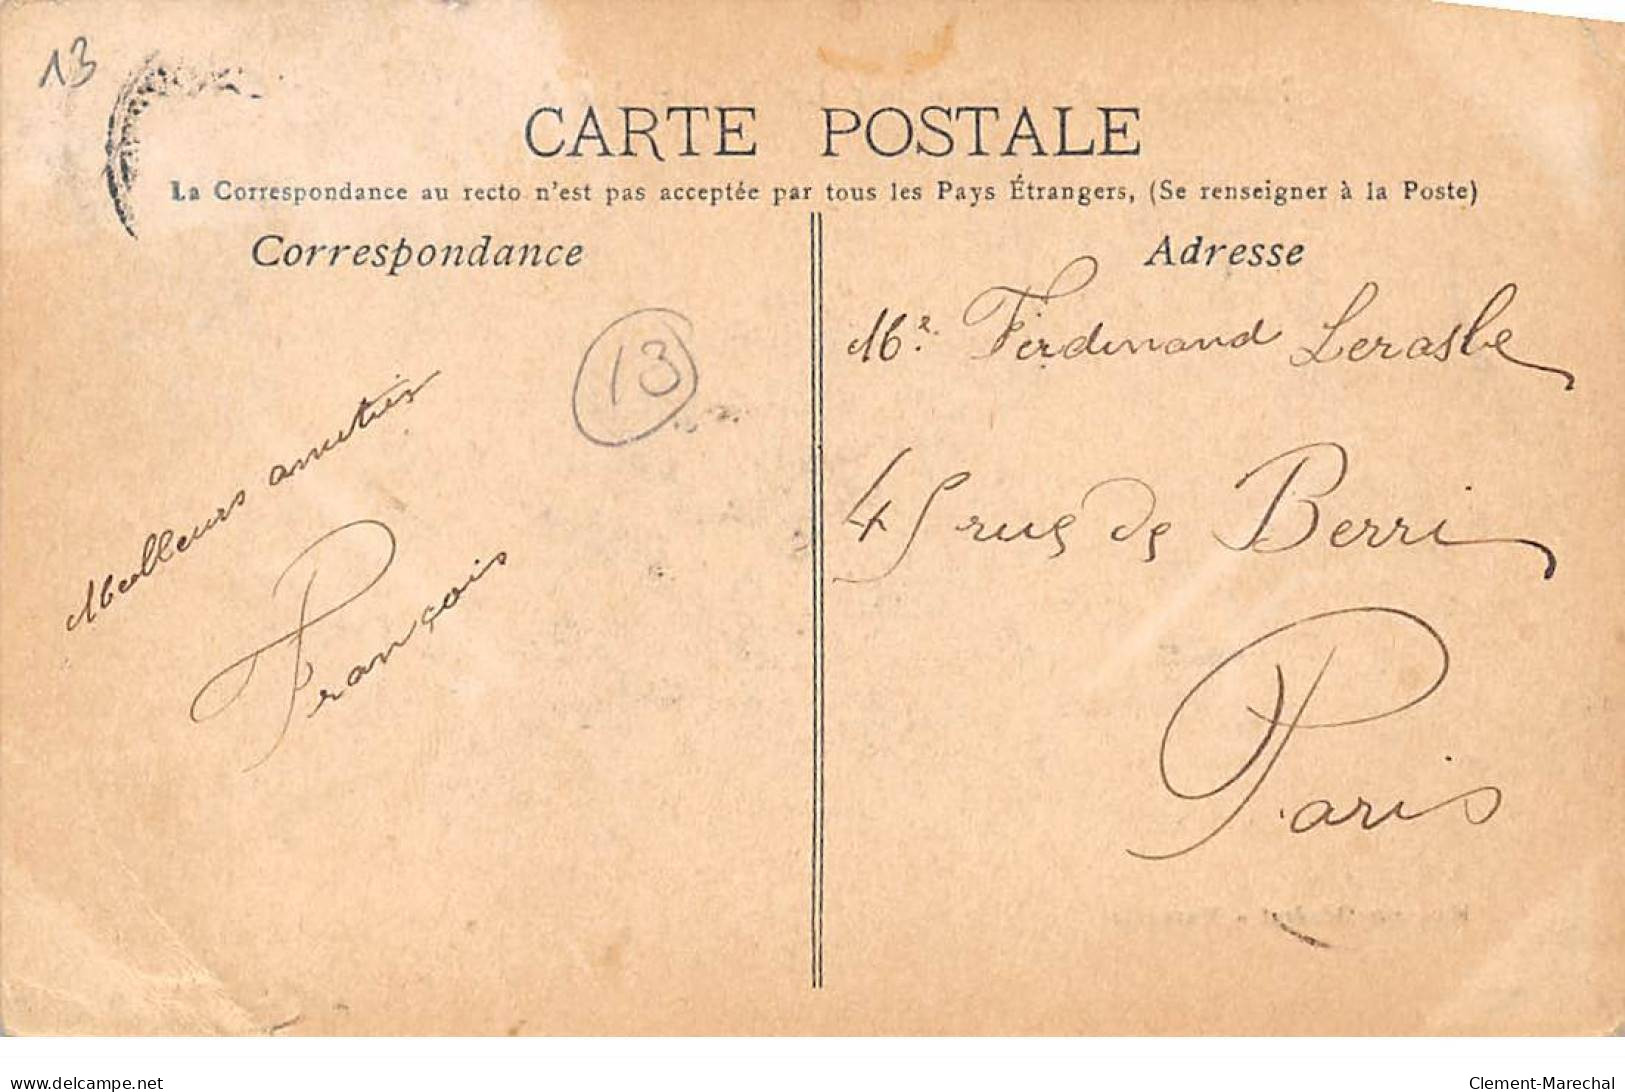 13
CARTE POSTALE
La Correspondance au recto n'est pas acceptée par tous les Pays Étrangers, (Se renseigner à la Poste)
Correspondance
Adresse
13
Meilleurs amitiés
François
Mr. Ferdinand
45 rue de Berri
Paris
www.delcampe.net
Clement-Marechal